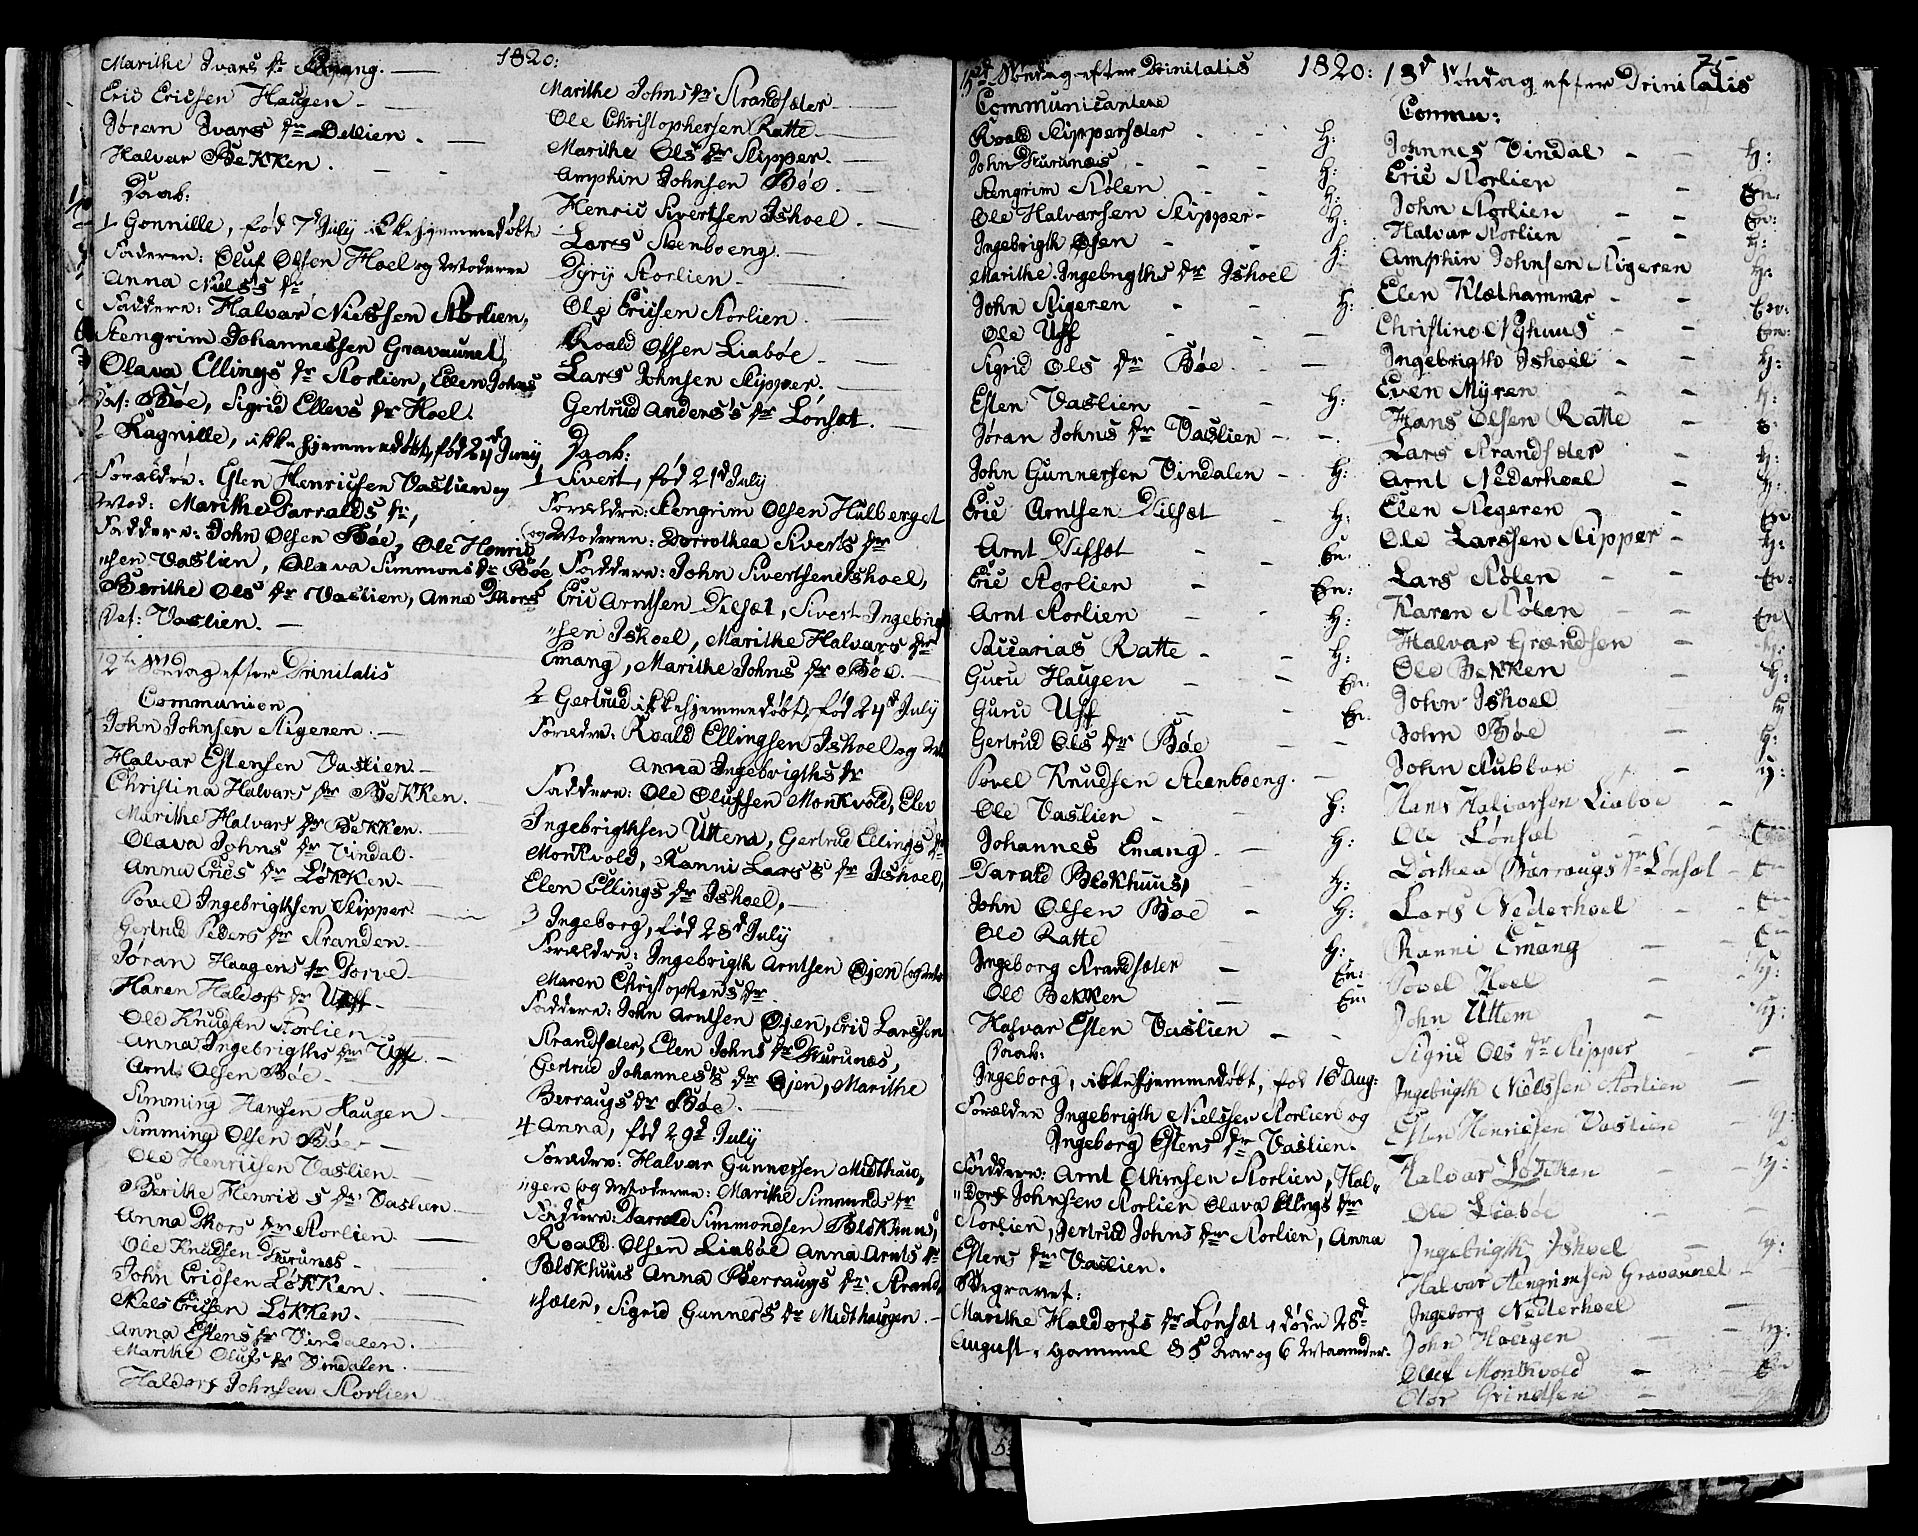 1820:
Marithe Ivars dr
Eric Ericsen Haugen
Jøran Ivars dr
Halvar Bekken.
Daab:
1 Gonnille, fød 7d July ikkehjemmedøbt
Faderen: Oluf Olsen Hoel og Moderen
Anna Niels's dr
Faddere: Halvar Nielssen Storlien,
Stengrim Johannessen Gravaunet,
Olava Ellings dr Storlien, Ellen Johns
Dat: Bøe, Sigrid Ellevs dr Hoel.
2 Ragnille, ikkehjemmedøbt, fød 24d Juny
Forældre: Esten Henricsen Vaslien og
Mod: Marithe Tarralds dr,
Faddere: John Olsen Bøe, Ole Henric
sen Vaslien, Olava Simmons dr Bøe,
Berithe Ols dr Vaslien, Anna Thors
Dat: Vaslien.
12te Søndag efter Trinitatis
Communion
John Johnsen Stigeren
Halvar Estensen Vaslien
Christina Halvars dr Bekken.
Marithe Halvars dr Bekken.
Olava Johns dr Vindal.
Anna Erics dr Løkken.
Povel Ingebrigthsen Slipper
Gertrud Peders dr Stranden.
Jøran Haagens dr Torve
Karen Haldors dr Uff
Ole Knudsen Storlien
Anna Ingebrigths dr Uff
Arnt Olsen Bøe
Simming Hansen Haugen
Simming Olsen Bøe
Ole Henricsen Vaslien
Berithe Henrics dr Vaslien
Anna Thors dr Storlien
Ole Knudsen Sturunæs
John Ericsen Løkken
Niels Ericsen Løkken.
Anna Estens dr Vindalen.
Marithe Olufs dr Vindalen.
Haldors Johnsen Storlien
Marithe Johns dr Strandsæter
Ole Christophersen Ratte
Marithe Ols dr Slipper.
Amphin Johnsen Bøe.
Henric Sivertsen Ishoel
Lars Steenboeng.
Tyri Storlien
Ole Ericsen Storlien
Roald Olsen Liabøe
Lars Johnsen Slipper.
Gertrud Anders's dr Lønsæt.
Daab:
1 Sivert, fød 21d July
Forældre: Stengrim Olsen Hulberget
og Moderen: Dorrothea Siverts dr
Faddere: John Sivertsen Ishoel,
Eric Arntsen Dilsæt, Sivert Ingebrigt
sen Ishoel, Marithe Halvars dr
Emang, Marithe Johns dr Bøe.
2 Gertrud ikkehjemmedøbt, fød 24d July
Forældre: Roald Ellingsen Ishoel og
Anna Ingebrigths dr
Faddere: Ole Olufsen Monkvold, Elev
Ingebrigthsen Uttena, Gertrud Ellings dr
Monkvold, Ranni Lars's dr Ishoel,
Elen Ellings dr Ishoel,
3 Ingeborg, fød 28d July
Forældre: Ingebrigth Arntsen Øien (og
Maren Christophers dr
Faddere: John Arntsen Øjen, Eric Larssen
Strandsæter, Elen Johns dr Sturunæs,
Gertrud Johannes's dr Øjen, Marithe
Berraugs dr Bøe.
4 Anna, fød 29d July
Forældre: Halvar Gunnersen Midthau,
gen (og Moderen: Marithe Simmends dr
Faddere: Tarrald Simmondsen Blokhuus,
Roald Olsen Liabøe Anna Arnts dr
Blokhuus Anna Berraugs dr Strand,
sæter, Sigrid Gunners dr Midthaugen.
Søndag efter Trinitatis 1820:
Communicantere
Roald Slippersæter H:
John Sturunæs H:
Stengrim Stølen H:
Ole Halvarsen Slipper H:
Ingebrigth Øien H:
Marithe Ingebrigths dr Ishoel
John Stigeren H:
Ole Uff
Sigrid Ols dr Bøe
Esten Vaslien H:
Jøran Johns dr Vaslien
John Gunnersen Vindalen H:
Eric Arntsen Dilsæt H:
Arnt Dilsæt En:
Eric Storlien En:
Arnt Storlien H:
Saccarias Ratte H:
Guru Haugen En:
Guru Uff En:
Gertrud Ols dr Bøe
Povel Knudsen Steenboeng.
Ole Vaslien H:
Johannes Emang H:
Tarald Blokhuus H:
John Olsen Bøe H:
Ole Ratte H:
Ingeborg Strandsæter En:
Ole Bekken En:
Halvar Esten Vaslien
Daab:
Ingeborg, ikkehjemmedøbt, fød 16d Aug:
Forælder Ingebrigth Nielssen Storlien og
Ingeborg Estens dr Vaslien.
Faddere: Arnt Storlien, Hal-
dors Johnsen Storlien Olava Ellings dr
Storlien, Gertrud Johns dr Storlien, Anna
Estens dr Vaslien.
Begravet:
Marithe Haldors dr Lønsæt, døde 28d
August, gammel 85 Aar og 6 Maaneder.
75
13d Søndag efter Trinitatis
Commu:
Johannes Vindal H:
Eric Storlien En:
John Storlien En:
Halvar Storlien H:
Amphin Johnsen Stigeren H:
Elen Klæthammer En:
Christine Nyhuus En:
Ingebrigth Ishoel H:
Even Myren H:
Hans Olsen Ratte
Lars Strandsæter H:
Arnt Nederhoel H:
Elen Stegeren En
Ole Larssen Slipper H:
Lars Stølen En:
Karen Stølen En
Halvar Grændsen H:
Ole Bekken H:
John Ishoel
John Bøe H:
John
Hans Halvarsen Liabøe
Ole Lønsæt
Dorthea Barraugs dr Lønsæt
Lars Nederhoel
Ranni Emang
Povel Hoel
John Uttem
Sigrid Ols dr Slipper
Ingebrigth Nielssen Storlien
Esten Henricsen Vaslien
Halvar Løkken
Ole Liabøe
Ingebrigth Ishoel
Halvar Stengrimsen Gravaunet
Ingeborg Nederhoel
John Haugen
Oluf Monkvold
Grindsen